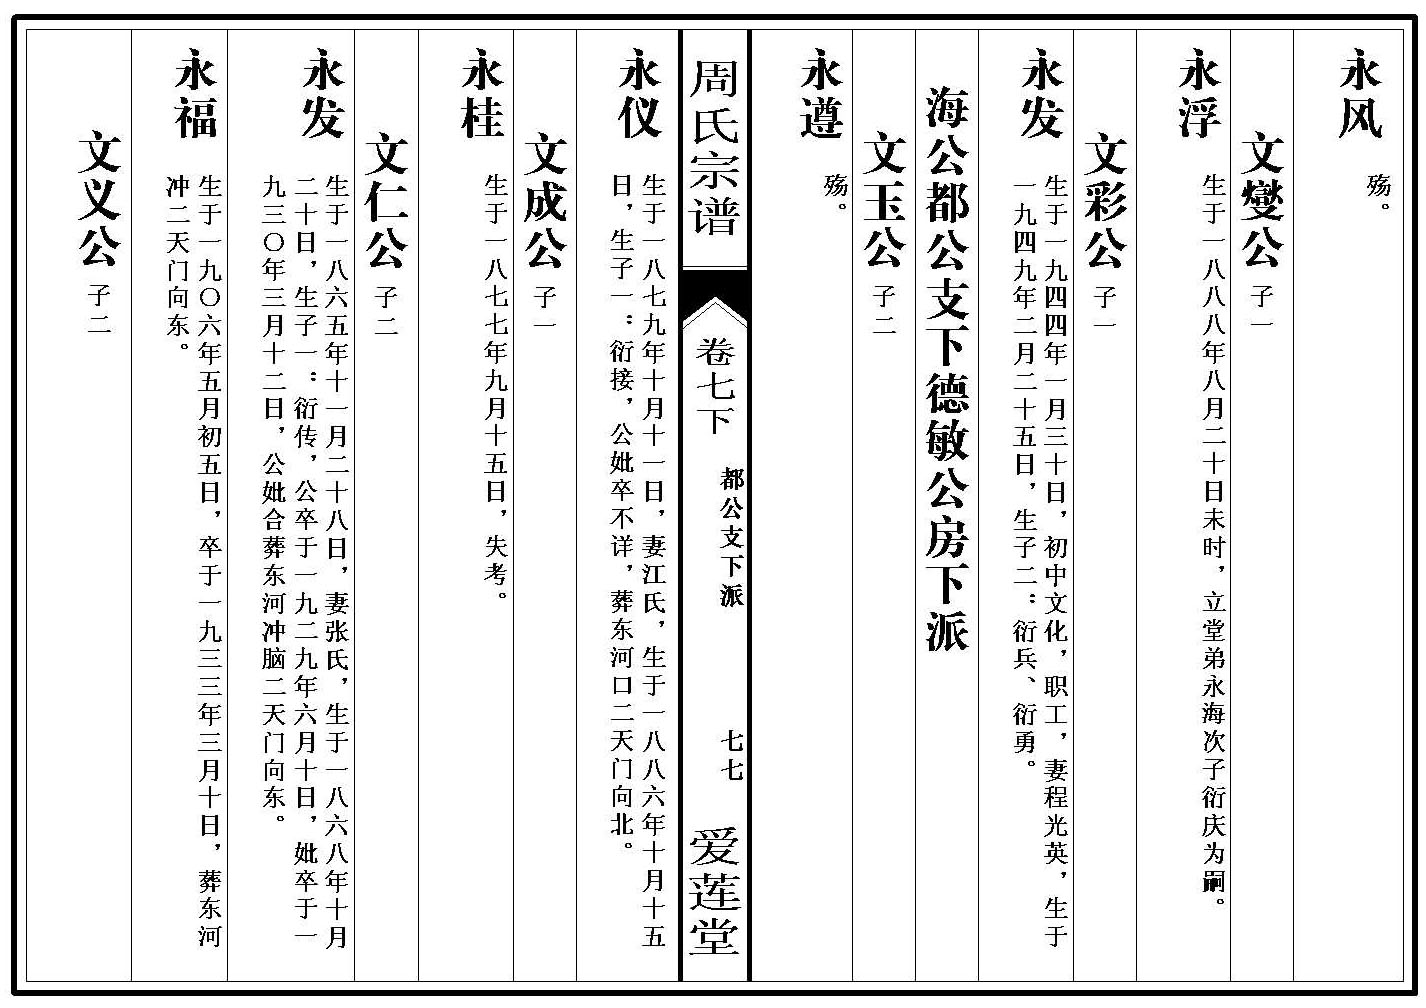 永风
殇。
文燮公 子一
永浮
生于一八八八年八月二十日未时，立堂弟永海次子衍庆为嗣。
文彩公 子一
永发
生于一九四四年一月三十日，初中文化，职工，妻程光英，生于
一九四九年二月二十五日，生子二：衍兵、衍勇。
海公都公支下德敏公房下派
文玉公 子二
永遵
殇。
周氏宗谱
卷七下
都公支下派
七七
爱莲堂
永仪
生于一八七九年十月十一日，妻江氏，生于一八八六年十月十五
日，生子一：衍接，公妣卒不详，葬东河口二天门向北。
文成公 子一
永桂
生于一八七七年九月十五日，失考。
文仁公 子二
永发
生于一八六五年十一月二十八日，妻张氏，生于一八六八年十月
二十日，生子一：衍传，公卒于一九二九年六月十日，妣卒于一
九三〇年三月十二日，公妣合葬东河冲脑二天门向东。
永福
生于一九〇六年五月初五日，卒于一九三三年三月十日，葬东河
冲二天门向东。
文义公 子二